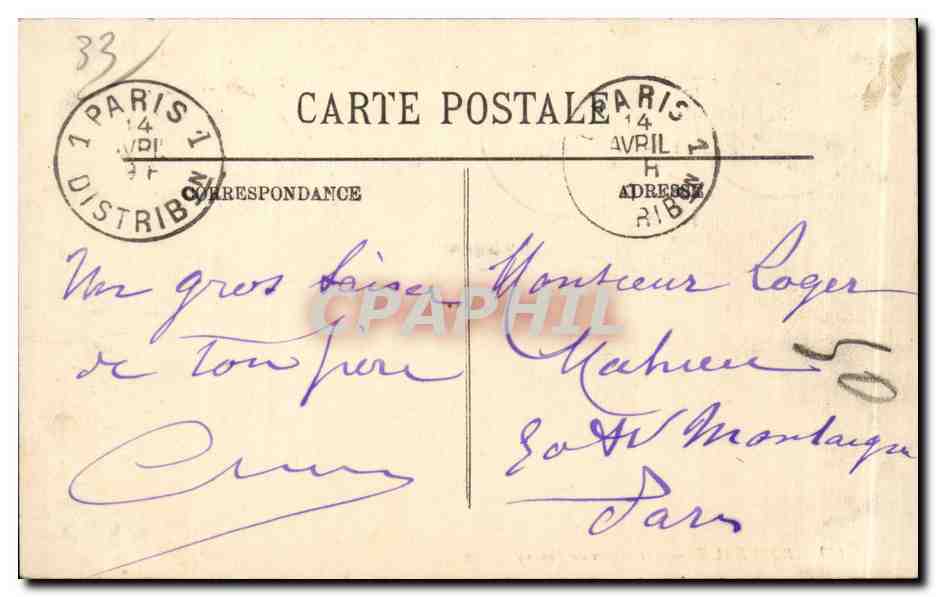 33
PARIS 1
14
AVRIL
DISTRIBON
1
CARTE POSTALE
PARIS 1
14
AVRIL
RIBON
CORRESPONDANCE
ADRESSE
Un gros baiser
de ton père
Monsieur Roger
Mahieu
50 AV Montaigne
Paris
CPAPHIL